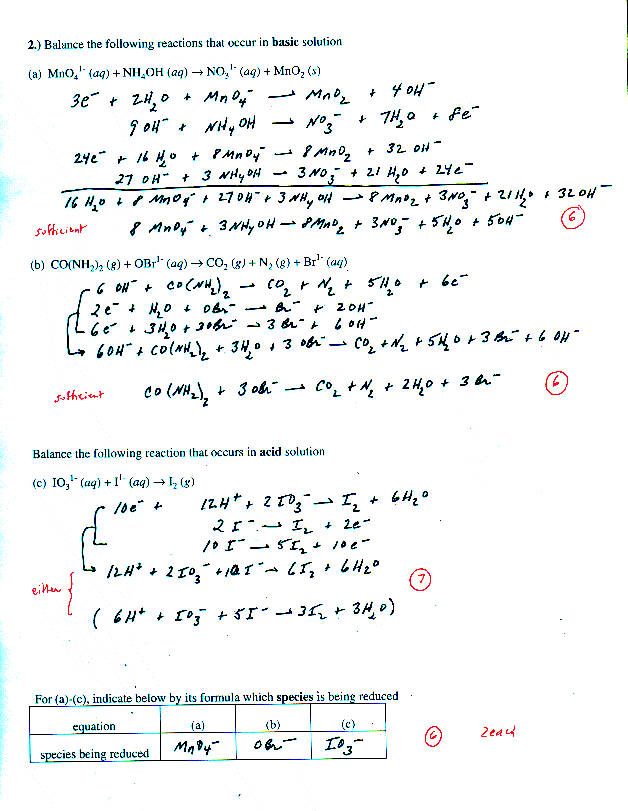 2.) Balance the following reactions that occur in basic solution
(a) MnO₄¹⁻ (aq) + NH₄OH (aq) → NO₃¹⁻ (aq) + MnO₂ (s)
3e⁻ + 2H₂O + MnO₄⁻ → MnO₂ + 4OH⁻
9OH⁻ + NH₄OH → NO₃⁻ + 7H₂O + 8e⁻
24e⁻ + 16 H₂O + 8MnO₄⁻ → 8MnO₂ + 32 OH⁻
27 OH⁻ + 3 NH₄OH → 3NO₃⁻ + 21 H₂O + 24e⁻
16 H₂O + 8 MnO₄⁻ + 27OH⁻ + 3NH₄OH → 8MnO₂ + 3NO₃⁻ + 21H₂O + 32OH⁻
sufficient 8 MnO₄⁻ + 3NH₄OH → 8MnO₂ + 3NO₃⁻ + 5H₂O + 5OH⁻ 6
(b) CO(NH₂)₂ (g) + OBr¹⁻ (aq) → CO₂ (g) + N₂ (g) + Br¹⁻ (aq)
6 OH⁻ + CO(NH₂)₂ → CO₂ + N₂ + 5H₂O + 6e⁻
2e⁻ + H₂O + OBr⁻ → Br⁻ + 2OH⁻
6e⁻ + 3H₂O + 3OBr⁻ → 3Br⁻ + 6OH⁻
6OH⁻ + CO(NH₂)₂ + 3H₂O + 3 OBr⁻ → CO₂ + N₂ + 5H₂O + 3Br⁻ + 6 OH⁻
sufficient CO(NH₂)₂ + 3OBr⁻ → CO₂ + N₂ + 2H₂O + 3Br⁻ 6
Balance the following reaction that occurs in acid solution
(c) IO₃¹⁻ (aq) + I¹⁻ (aq) → I₂ (g)
10e⁻ + 12H⁺ + 2IO₃⁻ → I₂ + 6H₂O
2I⁻ → I₂ + 2e⁻
10I⁻ → 5I₂ + 10e⁻
12H⁺ + 2IO₃⁻ + 10I⁻ → 6I₂ + 6H₂O
either 7
(6H⁺ + IO₃⁻ + 5I⁻ → 3I₂ + 3H₂O)
For (a)-(c), indicate below by its formula which species is being reduced
equation (a) (b) (c)
species being reduced MnO₄⁻ OBr⁻ IO₃⁻ 6 2 each